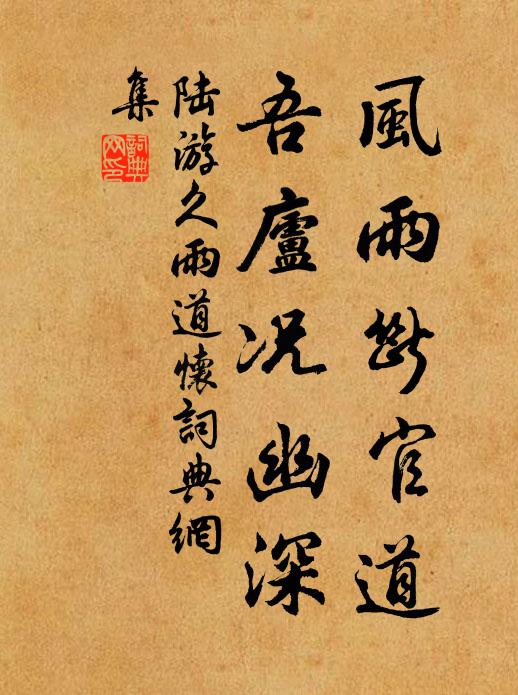 風雨斷官道
吾廬况幽深
陸游久雨道懷詞典網
集
詞典
网印